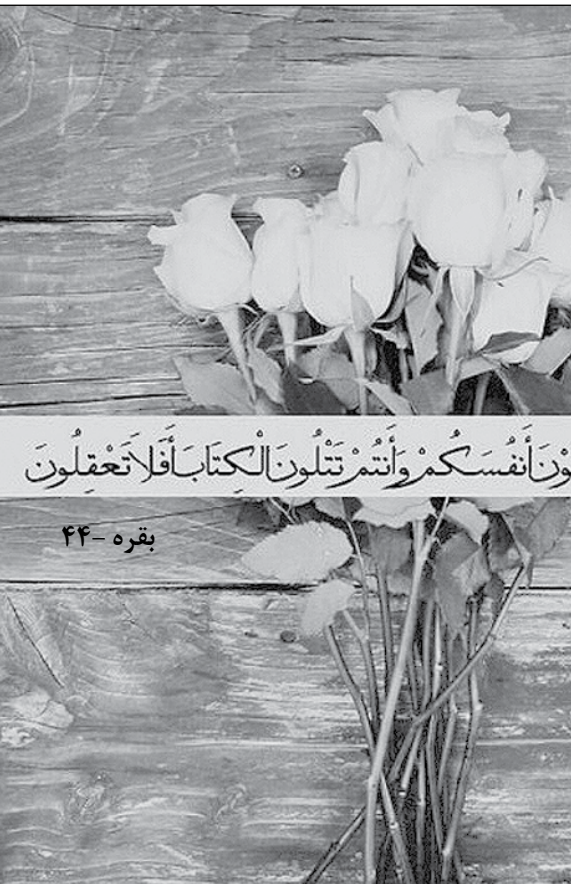 أَنفُسَكُمْ وَأَنتُمْ تَتْلُونَ الْكِتَابَ أَفَلَا تَعْقِلُونَ
بقره – ۴۴